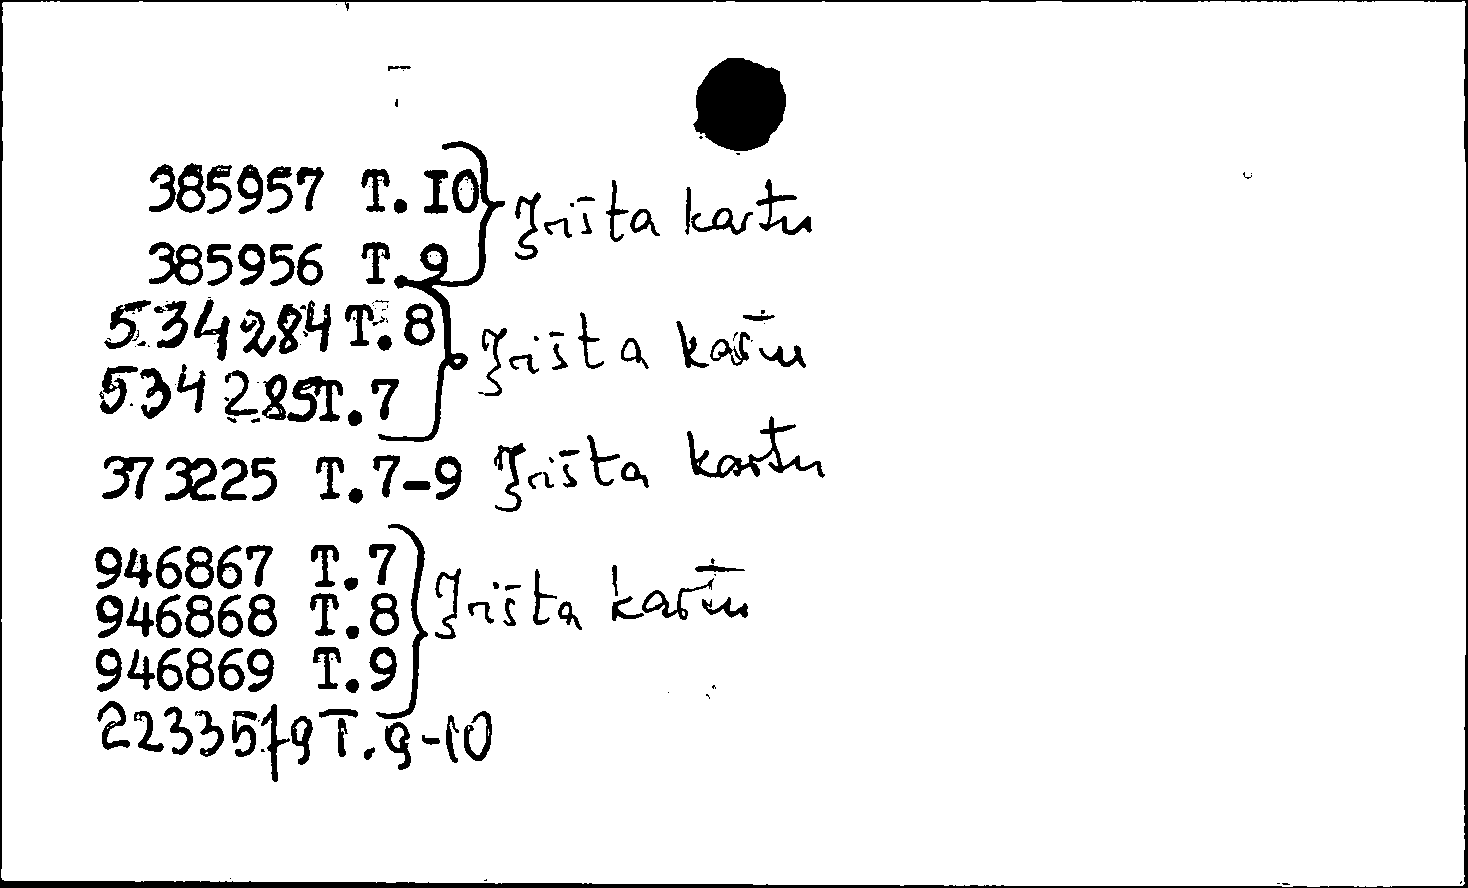 385957 T.I0 } Įrišta kartu
385956 T.9
534284 T.8 } Įrišta kartu
534285 T.7
373225 T.7-9 Įrišta kartu
946867 T.7 } Įrišta kartu
946868 T.8
946869 T.9
2233579 T.9-10